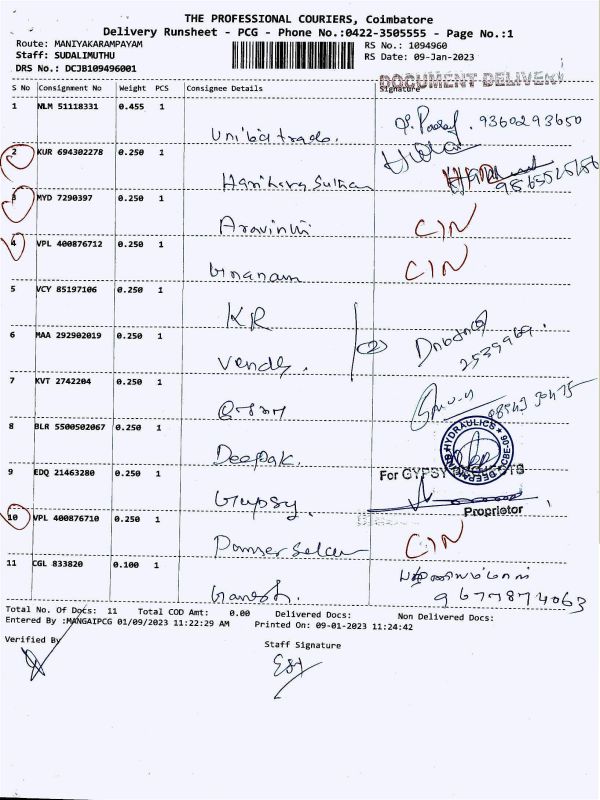 THE PROFESSIONAL COURIERS, Coimbatore
Delivery Runsheet - PCG - Phone No.:0422-3505555 - Page No.:1
Route: MANIYAKARAMPAYAM
RS No.: 1094960
Staff: SUDALIMUTHU
RS Date: 09-Jan-2023
DRS No.: DCJB109496001
DOCUMENT DELIVERY
S No Consignment No Weight PCS Consignee Details Signature
1 NLM 51118331 0.455 1
Uniba trade. 9360293650
2 KUR 694302278 0.250 1
Harihara Suthan
3 MYD 7290397 0.250 1
Aravinth CIN
4 VPL 400876712 0.250 1
Gnanam CIN
5 VCY 85197106 0.250 1
KR
6 MAA 292902019 0.250 1
(2) 2539969.
7 KVT 2742204 0.250 1
8 BLR 5500502067 0.250 1
Deepak. HYDRAULICS
9 EDQ 21463280 0.250 1
For GYPSY
Gypsy. Proprietor
10 VPL 400876710 0.250 1
CIN
11 CGL 833820 0.100 1
Ganesh. 9677874063
Total No. Of Docs: 11 Total COD Amt: 0.00 Delivered Docs: Non Delivered Docs:
Entered By :MANGAIPCG 01/09/2023 11:22:29 AM Printed On: 09-01-2023 11:24:42
Verified By Staff Signature